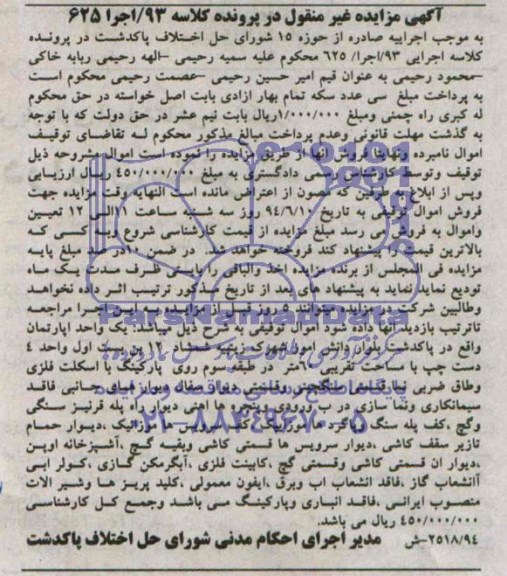 آگهی مزایده غیر منقول در پرونده کلاسه ۹۳/اجرا ۶۲۵
به موجب اجراییه صادره از حوزه ۱۵ شورای حل اختلاف پاکدشت در پرونده
کلاسه اجرایی ۹۳/اجرا/ ۶۲۵ محکوم علیه سمیه رحیمی -الهه رحیمی ربابه خاکی
-محمود رحیمی به عنوان قیم امیر حسین رحیمی -عصمت رحیمی محکوم است
به پرداخت مبلغ سی عدد سکه تمام بهار ازادی بابت اصل خواسته در حق محکوم
له کبری راه چمنی ومبلغ ۱/۰۰۰/۰۰۰ریال بابت نیم عشر در حق دولت که با توجه
به گذشت مهلت قانونی وعدم پرداخت مبالغ مذکور محکوم له تقاضای توقیف
اموال نامبرده ونهایتا فروش آنها از طریق مزایده را نموده است اموال مشروحه ذیل
توقیف وتوسط کارشناس رسمی دادگستری به مبلغ ۴۵۰/۰۰۰/۰۰۰ ریال ارزیابی
وپس از ابلاغ به طرفین که مصون از اعتراض مانده است النهایه وقت مزایده جهت
فروش اموال توقیفی به تاریخ ۹۴/۶/۱۰ روز سه شنبه ساعت ۱۱الی ۱۲ تعیین
واموال به فروش می رسد مبلغ مزایده از قیمت کارشناسی شروع وبه کسی که
بالاترین قیمت را پیشنهاد کند فروخته خواهد شد. در ضمن ۱۰در صد مبلغ پایه
مزایده فی المجلس از برنده مزایده اخذ والباقی را بایستی ظرف مدت یک ماه
تودیع نماید به پیشنهاد های بعد از تاریخ مذکور ترتیب اثر داده نخواهد
وطالبین شرکت در مزایده میتوانند ۵ روز قبل از مزایده به این اجرا مراجعه
تاترتیب بازدید آنها داده شود اموال توقیفی به شرح ذیل میباشد: یک واحد اپارتمان
واقع در پاکدشت بلوار دانش آموز شهرک شهید ۱۲ بن بست اول واحد ۴
دست چپ با مساحت تقریبی ۶۰متر در طبقه سوم روی پارکینگ با اسکلت فلزی
وطاق ضربی نما قسمتی سنگچینی وقسمتی دیوار سفال دیوار های جانبی فاقد
سیمانکاری ونما سازی در ب ورودی وپنجره ها آهنی دیوار راه پله قرنیز سنگی
وگچ ،کف پله سنگ وپاگرد ها موزائیک ،کف سرویس ها موزائیک ،دیوار حمام
تازیر سقف کاشی ،دیوار سرویس ها قسمتی کاشی وبقیه گچ ،آشپزخانه اوپن
،دیوار ان قسمتی کاشی وقسمتی گچ ،کابینت فلزی ،آبگرمکن گازی ،کولر ابی
آانشعاب گاز ،فاقد انشعاب اب وبرق ،ایفون معمولی ،کلید پریز ها وشیر الات
منصوب ایرانی ،فاقد انباری وپارکینگ می باشد وجمع کل کارشناسی
۴۵۰/۰۰۰/۰۰۰ ریال می باشد.
۲۵۱۸/۹۴-ش مدیر اجرای احکام مدنی شورای حل اختلاف پاکدشت
ParsNamadData
پایگاه اطلاع رسانی مناقصه و مزایده
۰۲۱-۸۸۳۴۹۶۷۰-۵